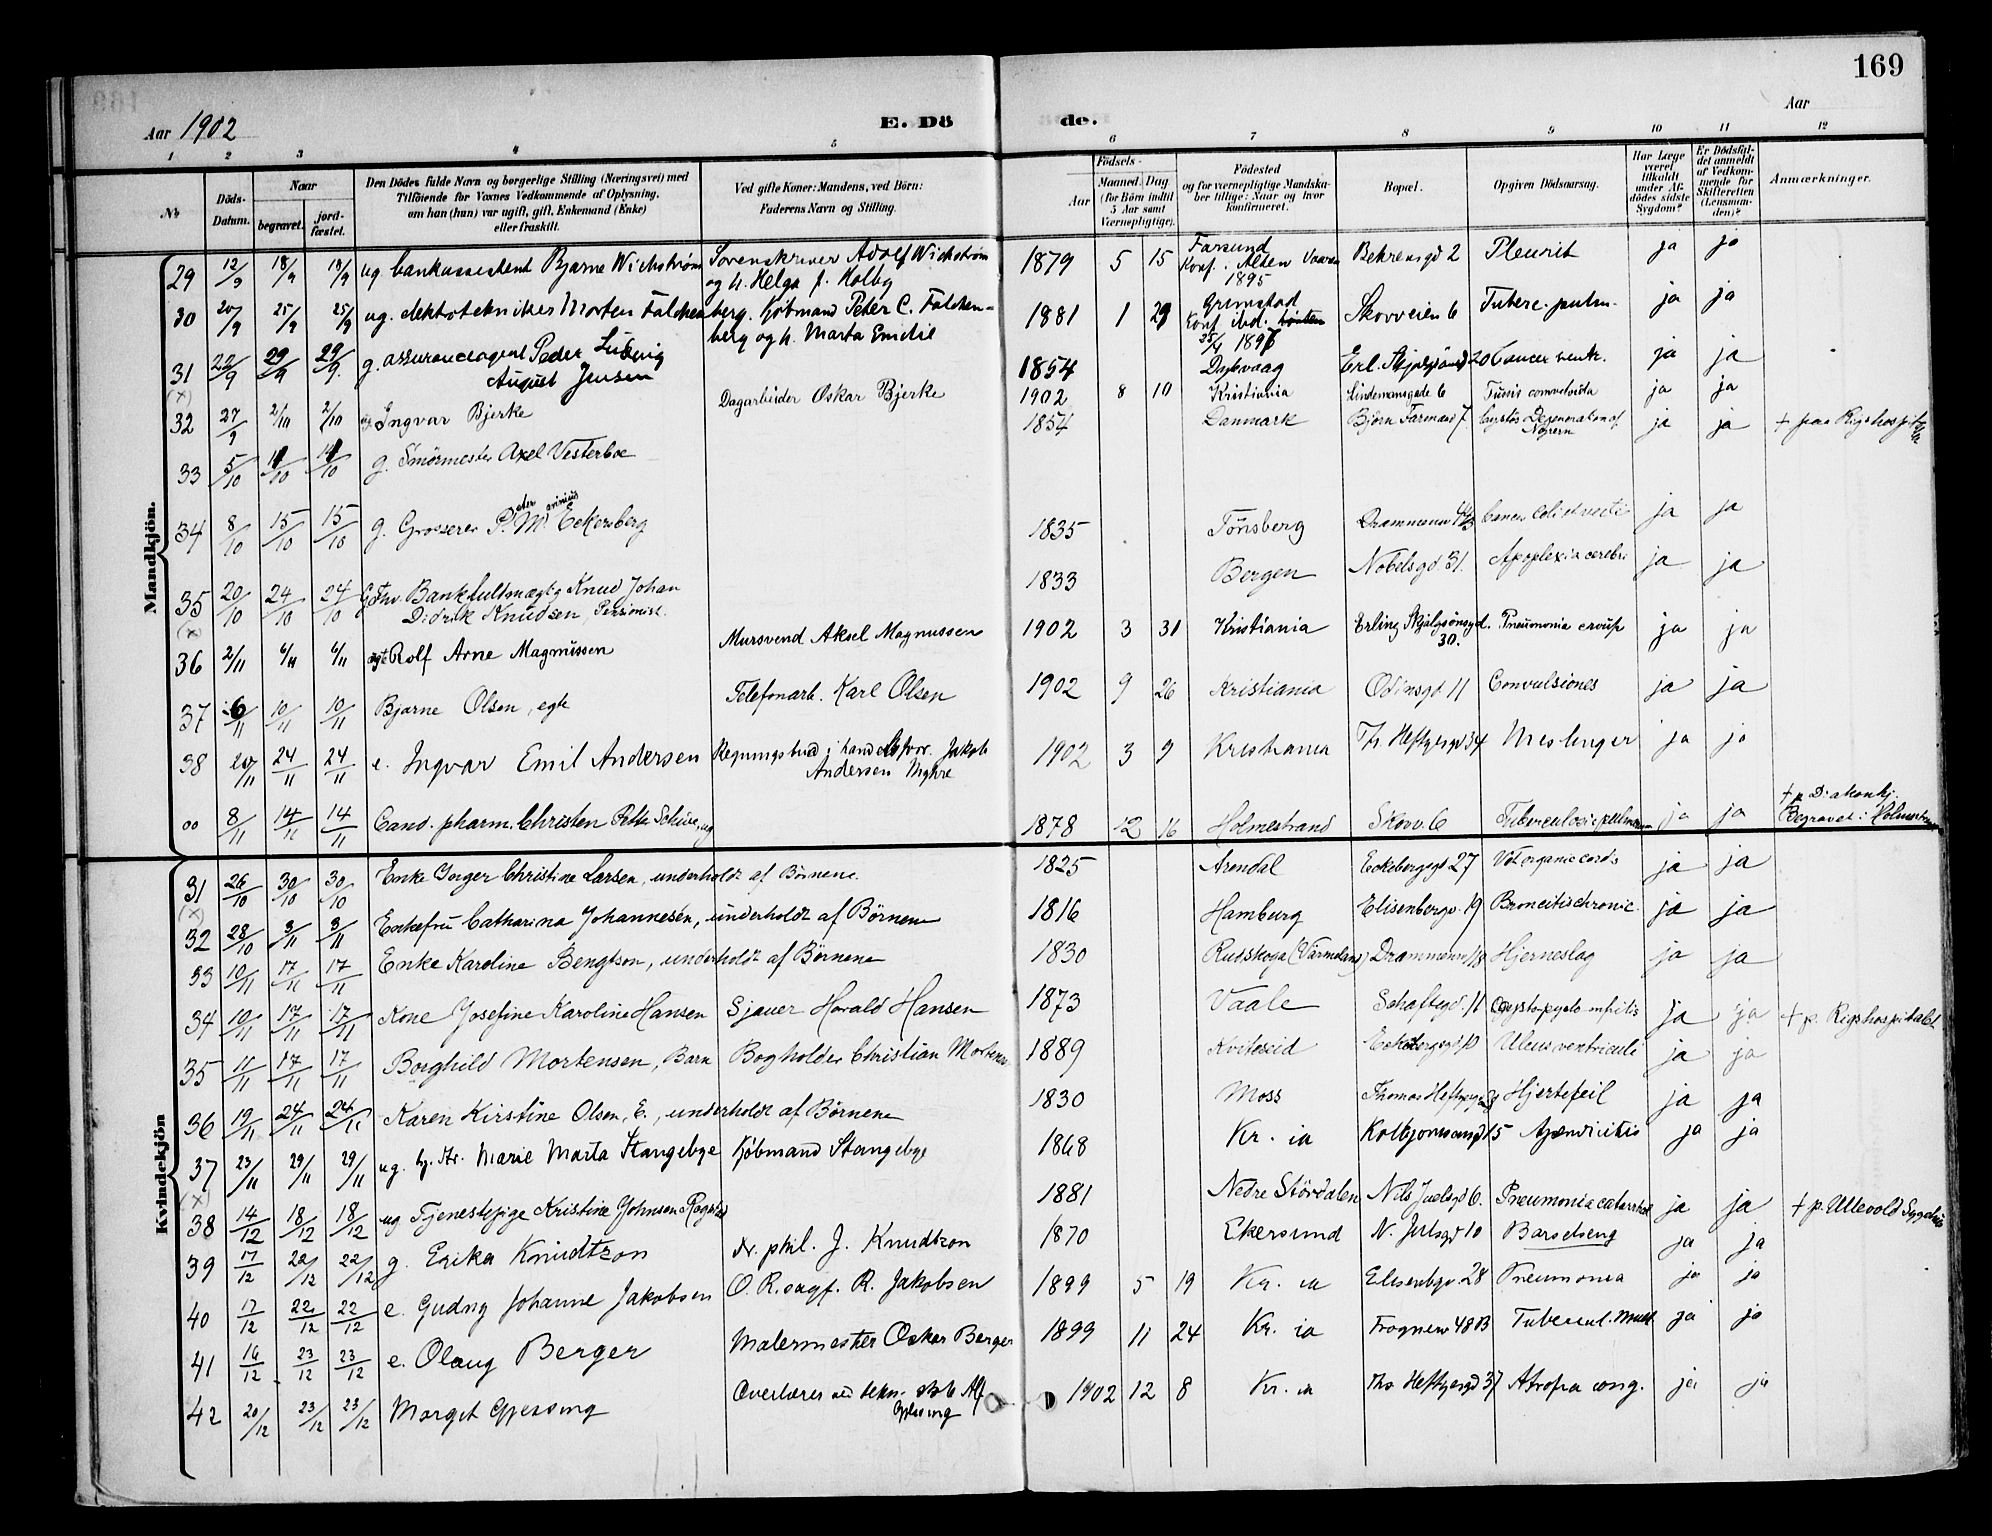 169
Aar 1902
E. Dö de.
Aar
1 2 3 4 5 6 7 8 9 10 11 12
No
Döds-Datum.
Naar
begravet. jord-fæstet.
Den Dödes fulde Navn og borgerlige Stilling (Næringsvei) med
Tilföiende for Voxnes Vedkommende af Oplysning,
om han (hun) var ugift, gift, Enkemand (Enke)
eller fraskilt.
Ved gifte Koner: Mandens, ved Börn:
Faderens Navn og Stilling.
Födsels-
Aar
Maaned. Dag
(for Börn indtil
5 Aar samt
Værnepligtige).
Födested
og for værnepligtige Mandska-
ber tillige: Naar og hvor
konfirmeret.
Bopæl.
Opgiven Dödsaarsag.
Har Læge
været
tilkaldt
under Af-
dödes sidste
Sygdom?
Er Dödsfal-
det anmeldt
af Vedkom-
mende for
Skifteretten
(Lensman-
den)?
Anmærkninger.
Mandkjön.
29 12/9 18/9 18/9 ug. bankassistent Bjarne Wichström Sorenskriver Adolf Wichström 1879 5 15 Farsund Behrensgd 2 Pleurit ja ja
og h. Helga f. Holby Konf. i Alten
1895
30 20/9 25/9 25/9 ug. elektotekniker Morten Falchenberg. Kjöbmand Peter C. Falchen- 1881 1 29 Grimstad Skovveien 6 Tuberc. pulm. ja ja
berg og h. Marta Emilie Konf. ibd.
25/4 1897
31 22/9 29/9 29/9 g. assuranceagent Peder Ludvig 1854 Dybvaag Erl. Skjalgsönsgd 20 Cancer ventr. ja ja
August Jensen
(x)
32 27/9 2/10 2/10 Ingvar Bjerke Dagarbeider Oskar Bjerke 1902 8 10 Kristiania Lindemansgade 6 Tussis convulsiva ja ja
33 5/10 11/10 11/10 g. Smörmester Axel Vesterboe 1854 Danmark Björn Farmand 7 Cystös Degeneration af ja ja + paa Rigshospitalet
Nyrern
34 8/10 15/10 15/10 g. Grosserer Peter M Eckersberg 1835 Tönsberg ja ja
35 20/10 24/10 24/10 Bankfuldmægtig Knud Johan 1833 Bergen Nobelsgd. 31. Apoplexia cerebri ja ja
Didrik Knudsen, Pensionist.
(x)
36 2/11 6/11 6/11 Rolf Arne Magnussen Mursvend Aksel Magnussen 1902 3 31 Kristiania Erling Skjalgsönsgd. Pneumonia croup ja ja
30.
37 6/11 10/11 10/11 Bjarne Olsen, egte Telefonarb. Karl Olsen 1902 9 26 Kristiania Odinsgd 11 Convulsiones ja ja
38 20/11 24/11 24/11 e. Ingvar Emil Andersen Regningsbud i handelsforr. Jakob 1902 3 9 Kristiania Th. Heftyesgd 34 Meslinger ja ja
Andersen Myhre
00 8/11 14/11 14/11 Cand. pharm. Christen ug 1878 12 16 Holmestrand Skovv. 6 ja ja + p. Diakonhj.
Begravet i Holmestrand
Kvindekjön
31 26/10 30/10 30/10 Enke Inger Christine Larsen, underholdt af Börnene. 1825 Arendal Eckebergsgd 27 Vit. organic. cordis ja ja
(x)
32 28/10 3/11 3/11 Enkefru Catharina Johannesen, underholdt af Börnene 1816 Hamburg Elisenbergv. 19 Broncitis chronic. ja ja
33 10/11 17/11 17/11 Enke Karoline Bengtson, underholdt af Börnene 1830 (Värmeland) Drammensv 18 Hjerneslag ja ja
34 10/11 17/11 17/11 Kone Josefine Karoline Hansen Sjauer Harald Hansen 1873 Vaale Schaftesgd. 11 ja ja + p. Rigshospitalet
35 11/11 17/11 17/11 Borghild Mortensen, Barn Bogholder Christian Mortensen 1889 Kviteseid Eckebergsgd 10 Ulcus ventriculi ja ja
36 19/11 24/11 24/11 Karen Kirstine Olsen, E., underholdt af Börnene 1830 Moss Thomas Heftyesgd Hjertefeil ja ja
37 23/11 29/11 29/11 ug. Marie Marta Stangebye Kjöbmand Stangebye 1868 Kr. ia Kolbjornsensgd 15 Apendicitis ja ja
(x)
38 14/12 18/12 18/12 ug Tjenestepige Kristine Johnsen 1881 Nedre Stördalen Nils Juelsgd 6. Pneumonia catarrhal ja ja + p. Ullevold Sygehus
39 17/12 22/12 22/12 g. Erika Knudtzon dr. phil. J. Knudtzon 1870 Ekersund N. Juelsgd 10 Barselseng ja ja
40 17/12 22/12 22/12 e. Gudny Johanne Jakobsen O. R. sagf. R. Jakobsen 1899 5 19 Kr. ia Elisenbgv 28 Pneumonia ja ja
41 16/12 23/12 23/12 e. Olaug Berger Malermester Oskar Berger 1899 11 24 Kr. ia Frognerv 48B Tubercul. Mult ja ja
42 20/12 23/12 23/12 Margit Gjessing Overlærer ved tekn. skole Alf 1902 12 8 Kr. ia Ths. Heftyesgd 37 Atrofia cong. ja ja
Gjessing